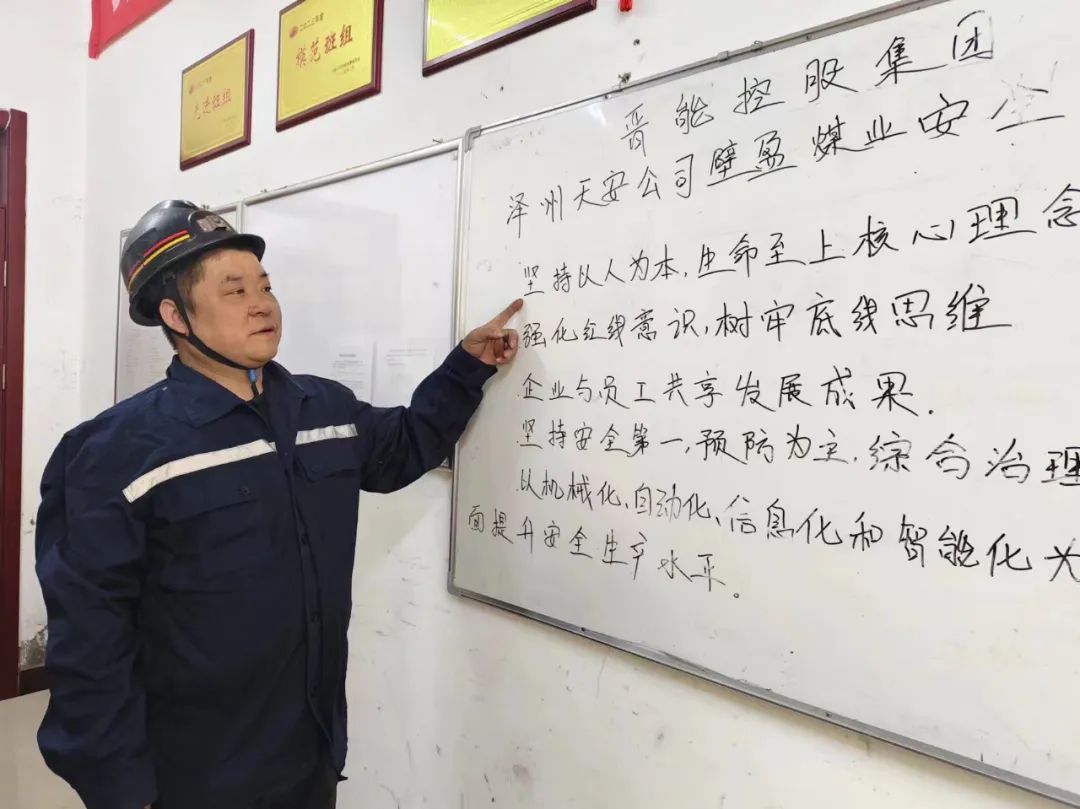 先进班组
模范班组
晋能控股集团
泽州天安公司壁盈煤业安全
坚持以人为本,生命至上核心理念
强化红线意识,树牢底线思维
企业与员工共享发展成果.
坚持安全第一,预防为主.综合治理
以机械化、自动化、信息化和智能化
面提升安全生产水平。